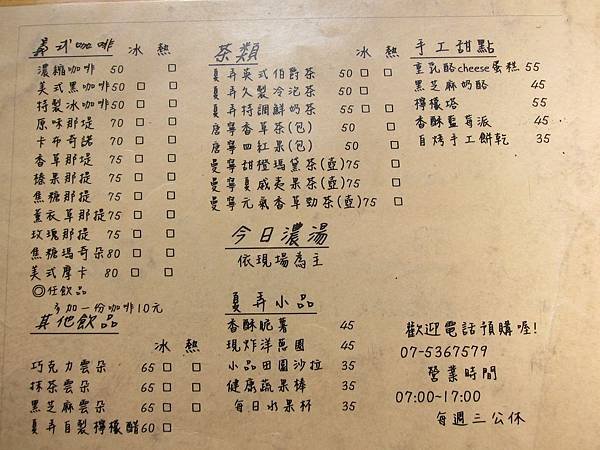 義式咖啡 冰 熱
濃縮咖啡 50 □
美式黑咖啡 50 □ □
特製冰咖啡 50 □ □
原味那堤 70 □ □
卡布奇諾 70 □ □
香草那堤 75 □ □
榛果那堤 75 □ □
焦糖那堤 75 □ □
薰衣草那堤 75 □ □
玫瑰那堤 75 □ □
焦糖瑪奇朵 80 □ □
美式摩卡 80 □ □
◎任飲品
多加一份咖啡10元
其他飲品
冰 熱
巧克力雲朵 65 □ □
抹茶雲朵 65 □ □
黑芝麻雲朵 65 □ □
夏弄自製檸檬醋 60 □
茶類 冰 熱
夏弄英式伯爵茶 50 □ □
夏弄久製冷泡茶 50 □
夏弄特調鮮奶茶 55 □ □
唐寧香草茶(包) 50 □
唐寧四紅果(包) 50 □
曼寧甜橙瑪黛茶(壺) 75 □
曼寧夏威夷果茶(壺) 75 □
曼寧元氣香草勁茶(壺) 75 □
今日濃湯
依現場為主
夏弄小品
香酥脆薯 45
現炸洋蔥圈 45
小品田園沙拉 35
健康蔬果棒 35
每日水果杯 35
手工甜點
重乳酪cheese蛋糕 55
黑芝麻奶酪 45
檸檬塔 55
香酥藍莓派 45
自烤手工餅乾 35
歡迎電話預購喔!
07-5367579
營業時間
07:00~17:00
每週三公休